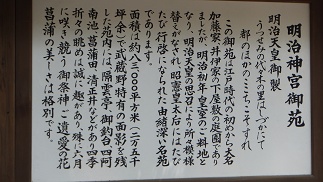 明治神宮御苑
明治天皇御製
うつせみの代々木の里はしづかにて
都のほかのここちこそすれ
この御苑は江戸時代の初めから大名
加藤家、井伊家の下屋敷の庭園であり
ましたが、明治初年、皇室の御料地と
なり、明治天皇の思召により所々模様
替えがなされ、昭憲皇太后にはたび
たび行啓になられた由緒深い名苑
であります。
面積は約八三、〇〇〇平方米(二万五千
坪余)で武蔵野特有の面影を残
した苑内には、隔雲亭、御釣台、四阿
南池、菖蒲田、清正井などがあり、四季
折々の眺めは誠に趣があり、殊に六月
に咲き競う御祭神ご遺愛の花
菖蒲の美しさは格別です。